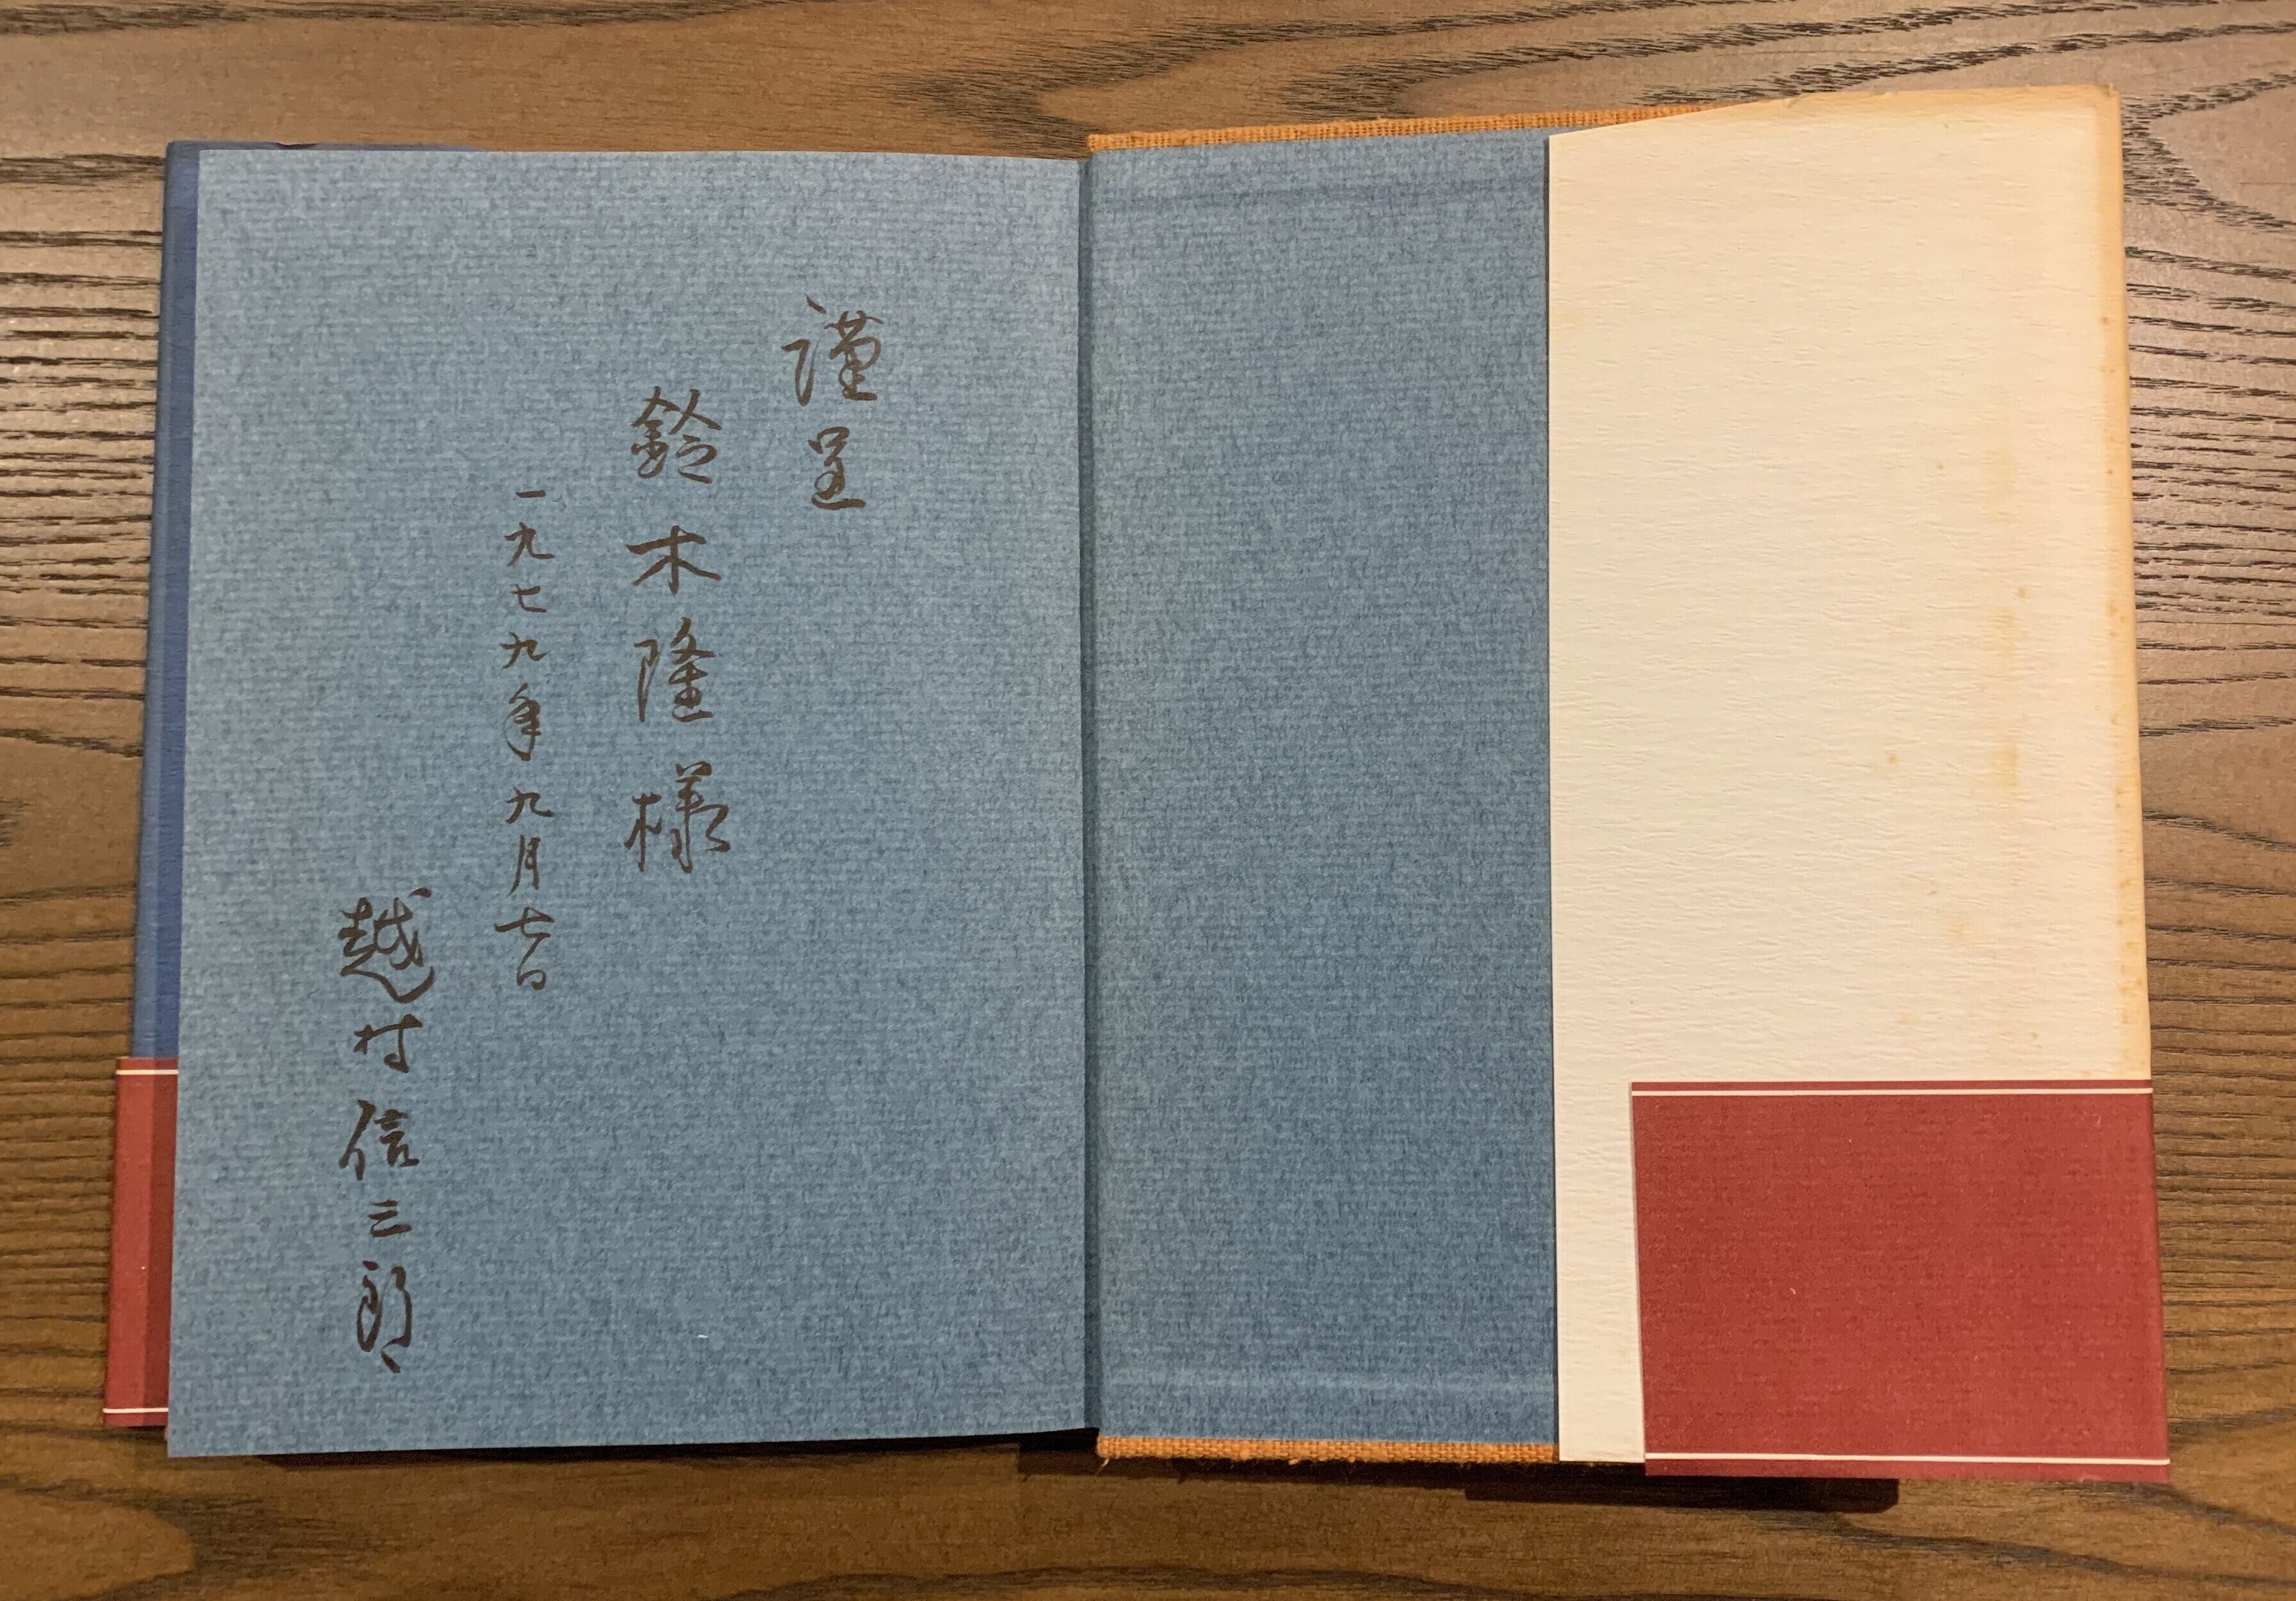 謹呈
鈴木隆様
一九七九年九月七日
越村信三郎